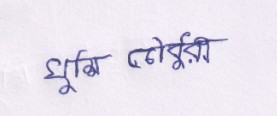 ঘুর্মি চৌধুরী